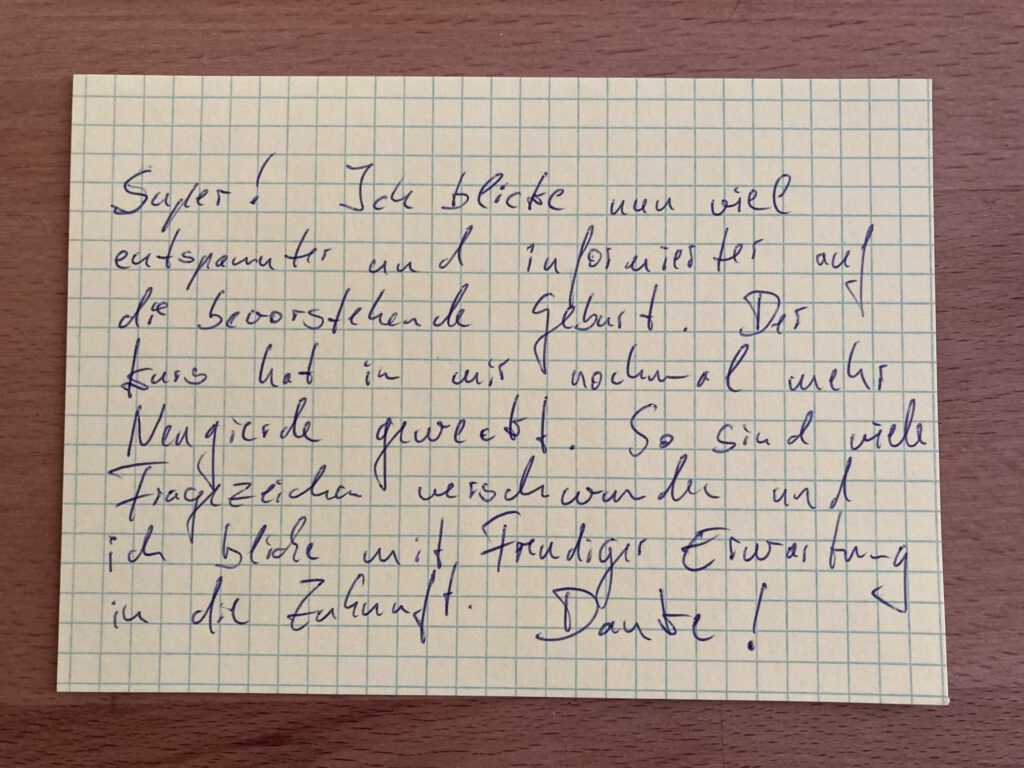 Super! Ich blicke nun viel
entspannter und informierter auf
die bevorstehende Geburt. Der
Kurs hat in mir nochmal mehr
Neugierde geweckt. So sind viele
Fragezeichen verschwunden und
ich blicke mit Freudiger Erwartung
in die Zukunft. Danke!